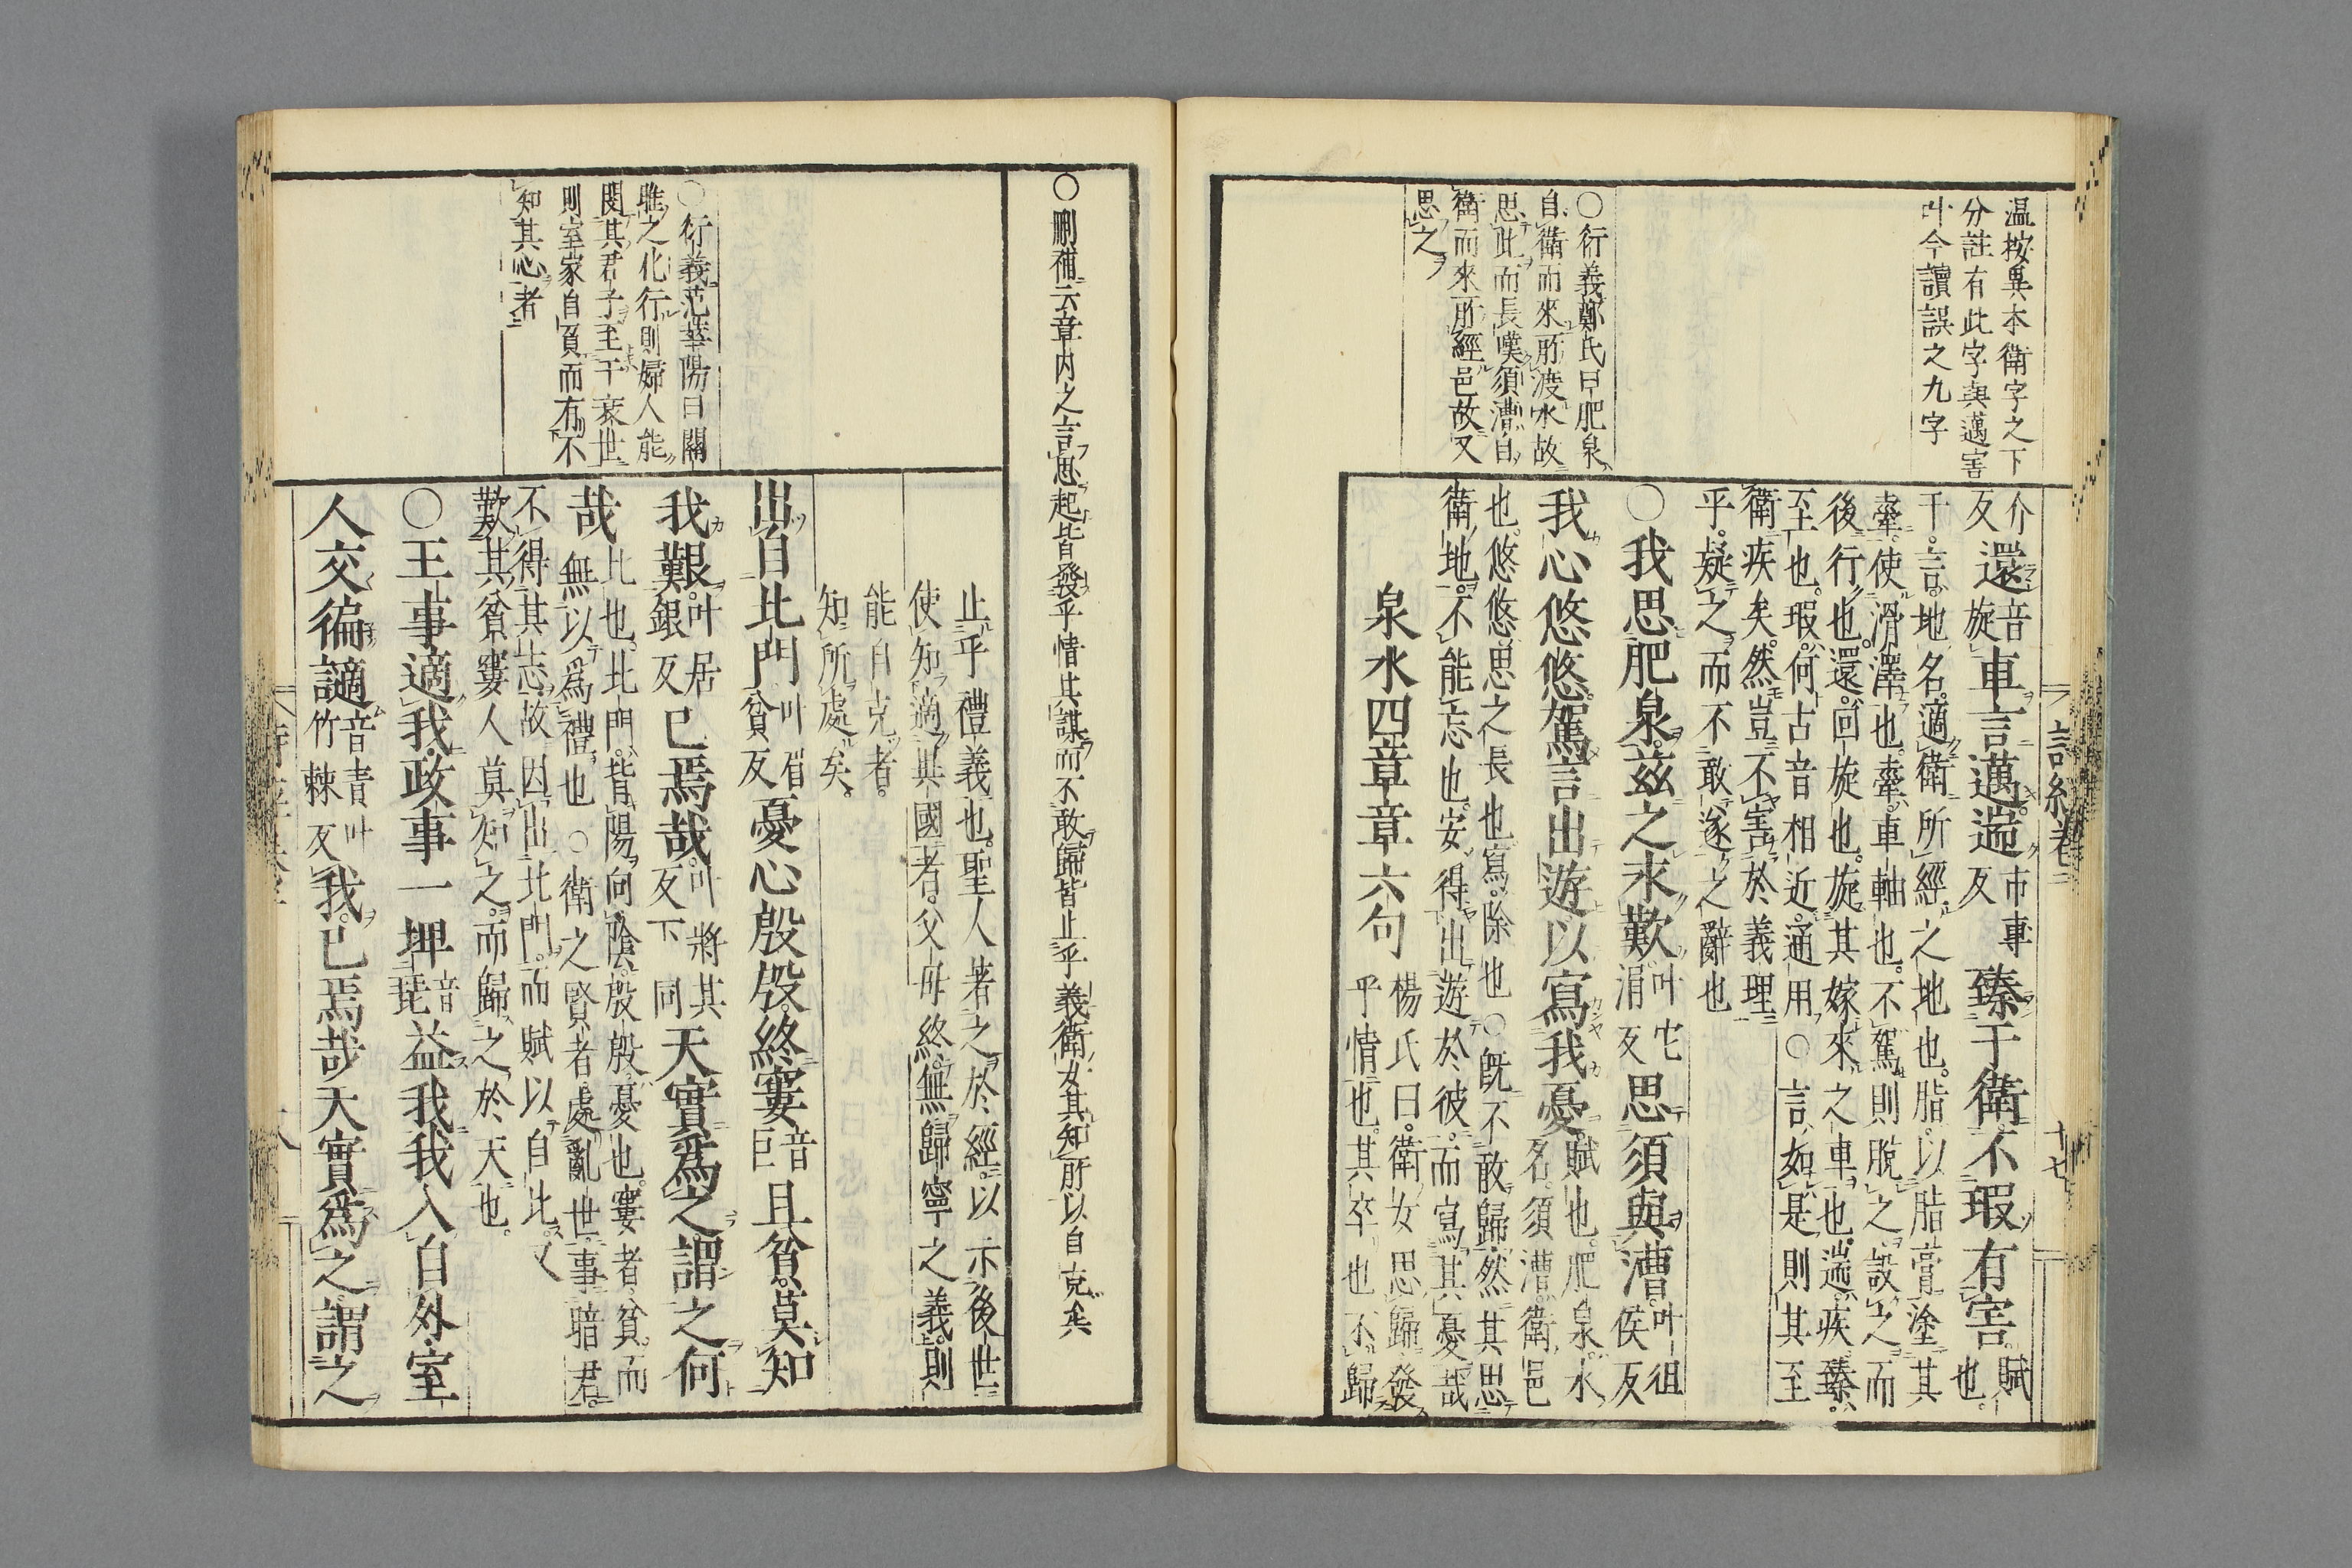 温按異本衛字之下
分註有此字與邁害
叶今讀誤之九字
○衍義鄭氏曰肥泉
自衛而來所渡水故
思此而長嘆須漕自
衛而來所經邑故又
思之
介
反
還
音
旋
車言邁遄
市專
反
臻于衛不瑕有害
賦
也
干言地名適衛所經之地也脂以脂膏塗其
舝使滑澤也舝車軸也不駕則脫之設之而
後行也還回旋也旋其嫁來之車也遄疾臻
至也瑕何古音相近通用○言如是則其至
衛疾矣然豈不害於義理
乎疑之而不敢遂之辭也
○我思肥泉茲之永歎
叶它
涓反
思須與漕
叶徂
侯反
我心悠悠駕言出遊以寫我憂
賦也肥泉水
名須漕衛邑
也悠悠思之長也寫除也○旣不敢歸然其思
衛地不能忘也安得出遊於彼而寫其憂哉
泉水四章章六句
楊氏曰衛女思歸發
乎情也其卒也不歸
詩經卷二
十七
○刪補云章內之言思起皆發乎情其謀而不敢歸皆止乎義衛女其知所以自克矣
○衍義范華陽曰關
雎之化行則婦人能
閔其君子至于衰世
則室家自貧而有不
知其心者
止乎禮義也聖人著之於經以示後世
使知適異國者父母終無歸寧之義則
能自克者
知所處矣
出自北門
叶眉
貧反
憂心殷殷終窶
音
巨
且貧莫知
我艱
叶居
銀反
已焉哉
叶將其
反下同
天實爲之謂之何
哉
比也北門背陽向陰殷殷憂也窶者貧而
無以爲禮也○衛之賢者處亂世事暗君
不得其志故因出北門而賦以自比又
歎其貧窶人莫知之而歸之於天也
○王事適我政事一埤
音
琵
益我我入自外室
人交徧讁
音責叶
竹棘反
我已焉哉天實爲之謂之